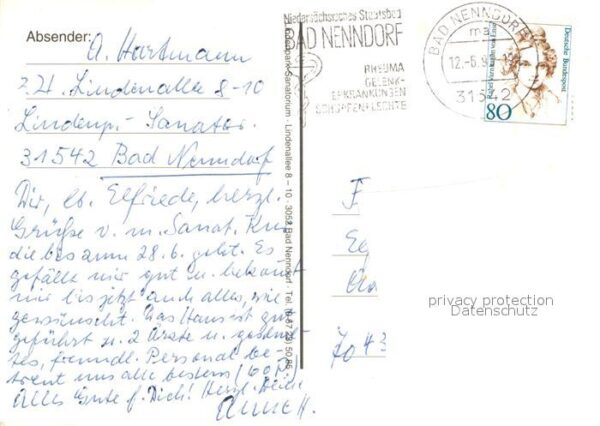 Absender: A. Hartmann
z. Zt. Lindenallee 8-10
Lindenp.- Sanator.
31542 Bad Nenndorf
Dir, lb. Elfriede, herzl.
Grüße v. m. Sanat. Kur,
die bis zum 28.6. geht. Es
gefällt mir gut u. bekommt
mir bis jetzt auch alles, wie
gewünscht. Das Haus ist gut
geführt u. 2 Ärzte u. geschul-
tes, freundl. Personal be-
treut uns alle bestens
Alles Gute f. Dich! Herzl.
Anne H.
Sanatorium - Lindenallee 8 - 10 - 3052 Bad Nenndorf - Tel.
Niedersächsisches Staatsbad
BAD NENNDORF
RHEUMA
GELENK-
ERKRANKUNGEN
SCHUPPENFLECHTE
BAD NENNDORF 1
ma
12.-6.9
31542
Deutsche Bundespost
80
F
Eg
privacy protection
Datenschutz